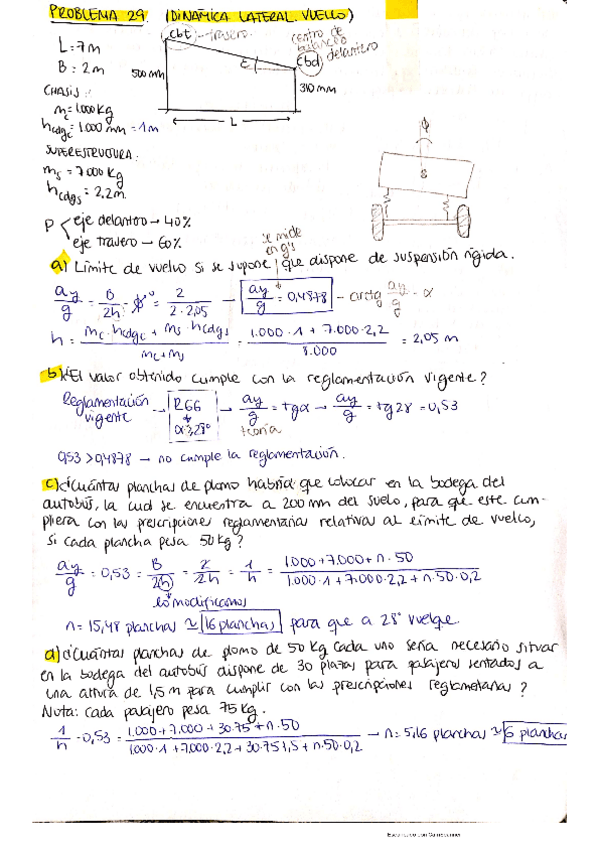 PROBLEMA 29. (DINÁMICA LATERAL. VUELCO)
L = 7m
B = 2m
cbt trasero
centro de balanceo
cbd delantero
500 mm
ε
310 mm
L
CHASIS:
mc = 1.000 kg
hcdgc = 1.000 mm = 1m
SUPERESTRUCTURA:
ms = 7000 kg
hcdgs = 2,2m
P eje delantero → 40%
eje trasero → 60%
φ
S
a) Límite de vuelco si se supone que dispone de suspensión rígida.
se mide en g's
ay/g = B/2h - φ = 2/2·2,05 → ay/g = 0,4878 → arctg ay/g = α
h = mc·hcdgc + ms·hcdgs / mc+ms = 1.000·1 + 7.000·2,2 / 8.000 = 2,05 m
b) ¿El valor obtenido cumple con la reglamentación vigente?
Reglamentación vigente → R66 α≥28° → ay/g = tgα → ay/g = tg28 = 0,53
teoría
0,53 > 0,4878 → no cumple la reglamentación.
c) ¿Cuántas planchas de plomo habría que colocar en la bodega del
autobús, la cual se encuentra a 200 mm del suelo, para que este cum-
pliera con las prescripciones reglamentarias relativas al límite de vuelco,
si cada plancha pesa 50 kg?
ay/g = 0,53 = B/2h = 2/2h = 1/h = 1.000+7.000+n·50 / 1.000·1+7.000·2,2+n·50·0,2
lo modificamos
n = 15,48 planchas ≃ 16 planchas para que a 28° vuelque.
d) ¿Cuántas planchas de plomo de 50 kg cada uno sería necesario situar
en la bodega del autobús dispone de 30 plazas para pasajeros sentados a
una altura de 1,5 m para cumplir con las prescripciones reglametarias?
Nota: cada pasajero pesa 75 kg.
1/h = 0,53 = 1.000+7.000+30·75+n·50 / 1.000·1+7.000·2,2+30·75·1,5+n·50·0,2 → n = 5,16 planchas ≃ 6 planchas